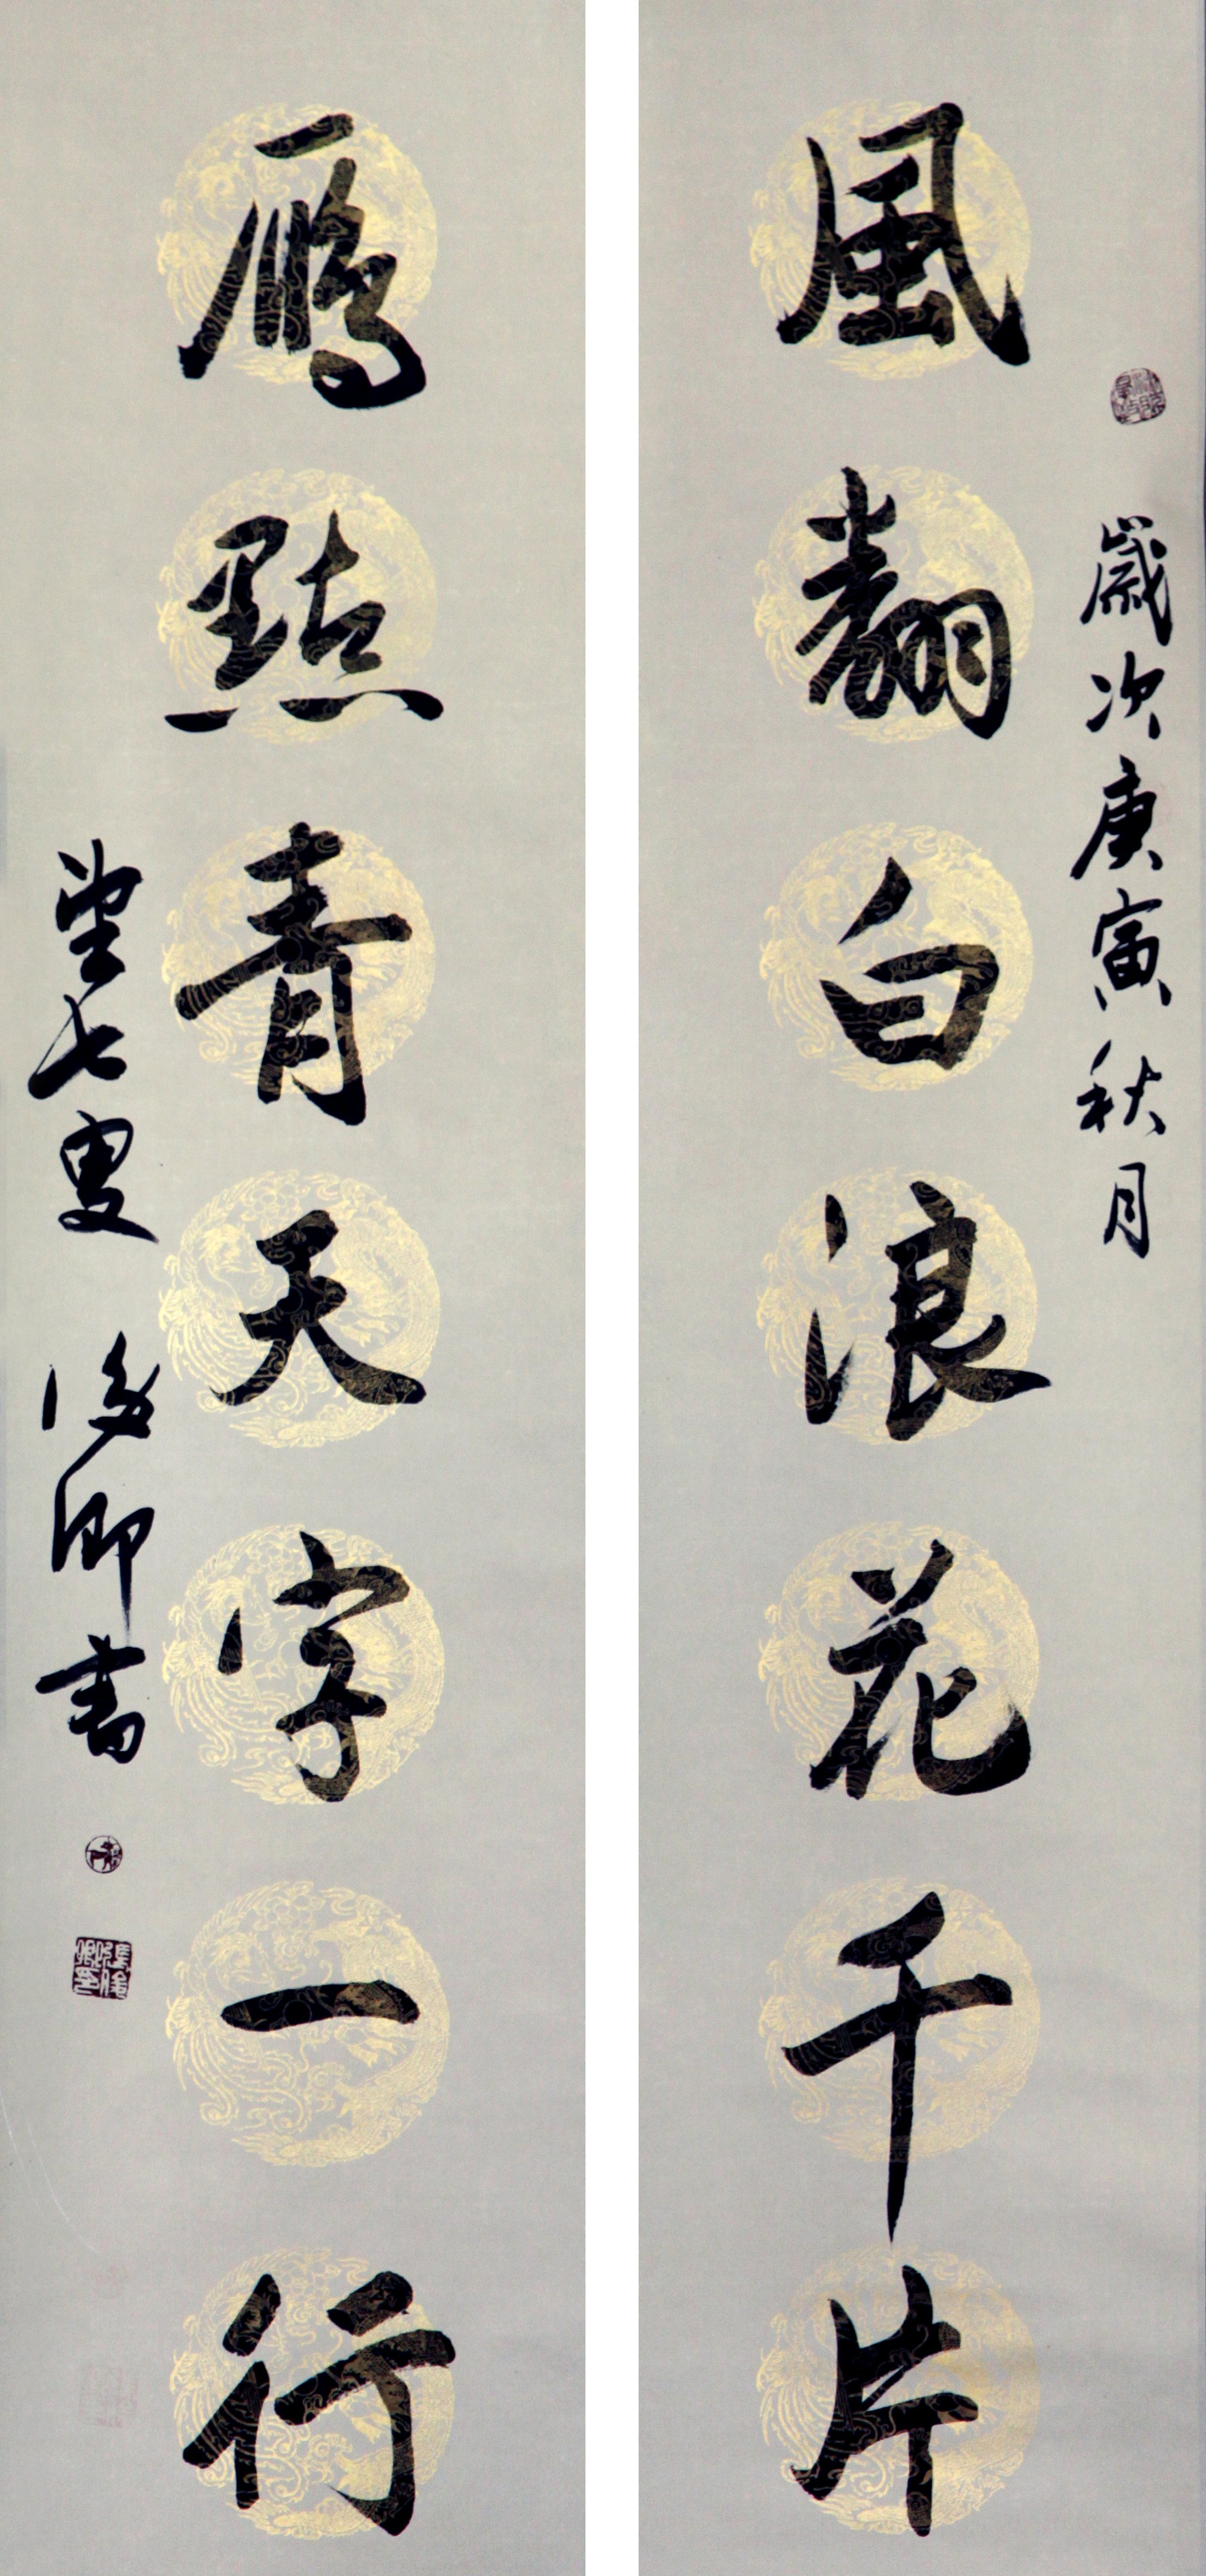 歲次庚寅秋月
風翻白浪花千片
鴈點青天字一行
望七叟 後卿書